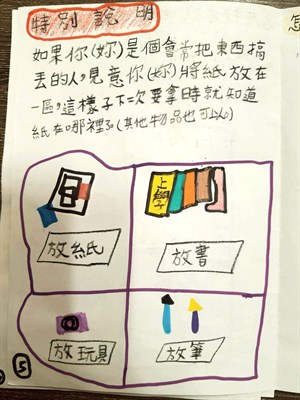 特別說明
如果你(妳)是個會常把東西搞
丟的人,見意你(妳)將紙放在
一區,這樣子下次要拿時就知道
紙在哪裡了(其他物品也可以)
上學
放紙
放書
放玩具
放筆
5